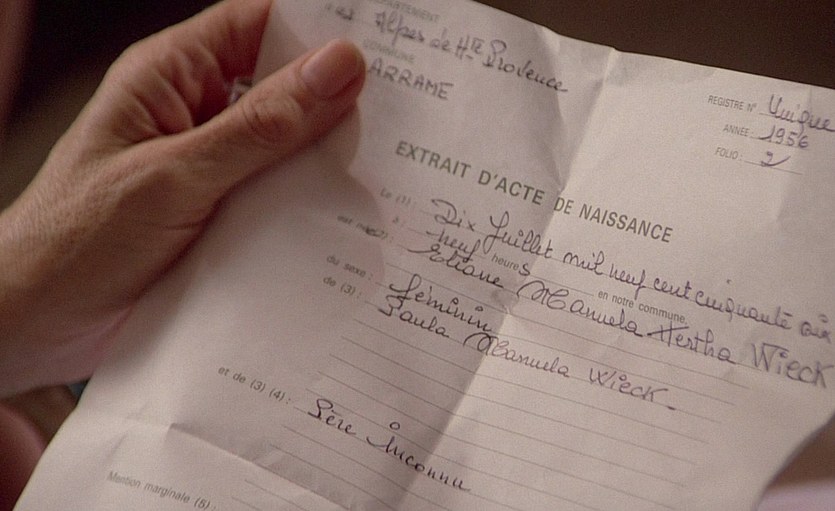 DÉPARTEMENT
des Alpes de Hte Provence
COMMUNE
ARRAME
REGISTRE N° Unique
ANNÉE : 1956
FOLIO : 2
EXTRAIT D'ACTE DE NAISSANCE
Le (1) : Dix Juillet mil neuf cent cinquante six
à : neuf heures en notre commune,
est née(2) : Manuela Hertha Wieck
du sexe : féminin
de (3) : Paula Manuela Wieck.
et de (3) (4) : Père Inconnu
Mention marginale (5) :